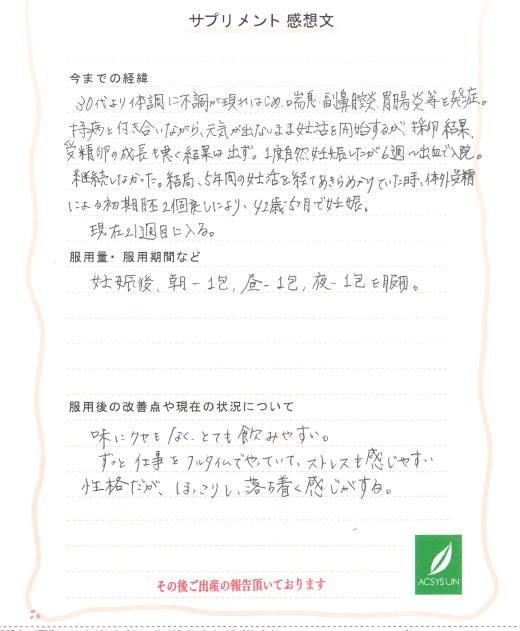 サプリメント 感想文
今までの経緯
30代より体調に不調が現れはじめ、喘息・副鼻腔炎、胃腸炎等を発症。
持病と付き合いながら、元気が出ないまま妊活を開始するが、採卵結果、
受精卵の成長も悪く結果は出ず。1度自然妊娠したが6週〜出血で入院。
継続しなかった。結局、5年間の妊活を経てあきらめかけていた時、体外受精
による初期胚2個戻しにより、42歳5ヶ月で妊娠。
現在21週目に入る。
服用量・服用期間など
妊娠後、朝－1包、昼－1包、夜－1包を服用。
服用後の改善点や現在の状況について
味にクセもなく、とても飲みやすい。
ずっと仕事をフルタイムでやっていて、ストレスも感じやすい
性格だが、ほっこりし、落ち着く感じがする。
ACSYSUN
その後ご出産の報告頂いております